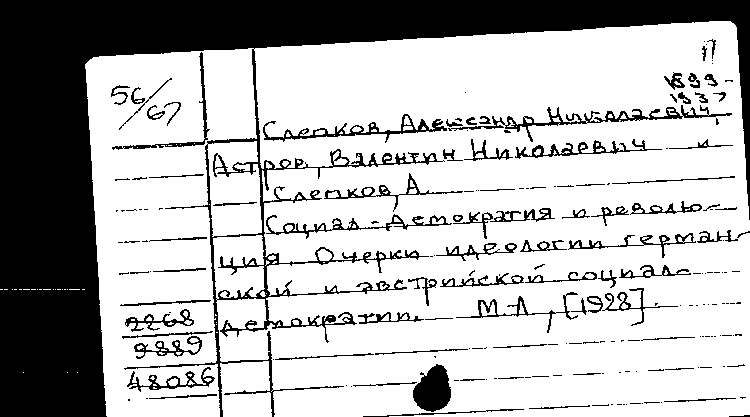 П
56/67
1899-
1937
Слепков, Александр Николаевич,
Астров, Валентин Николаевич и
Слепков, А.
Социал-Демократия и револю-
ция. Очерки идеологии герман-
ской и австрийской социал-
демократии. М-Л, [1928].
2268
9889
48086